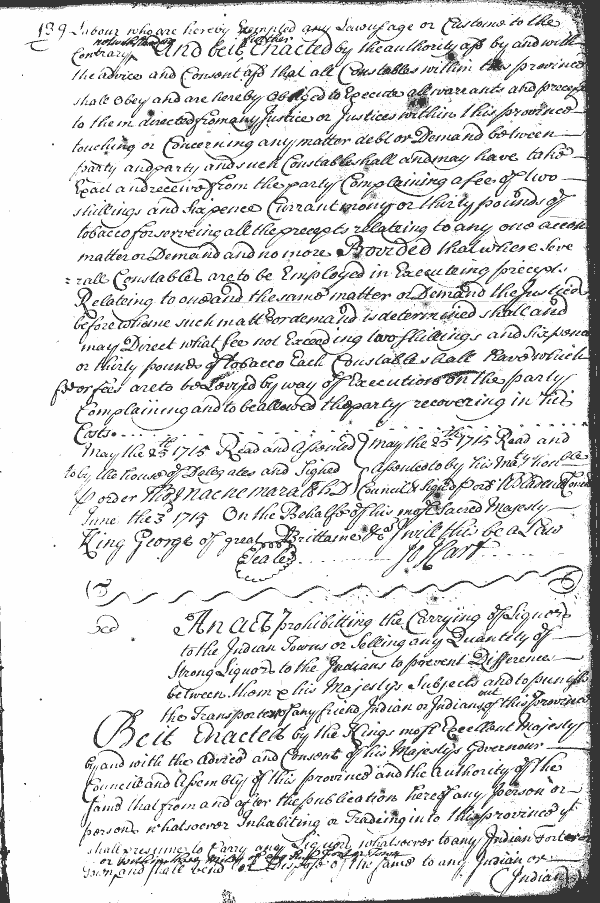 139 Labour who are hereby Exempted any Law usage or Custome to the
Contrary notwithstanding And be it further Enacted by the authority afsd by and with
the advice and Consent afsd that all Constables within this province
shall Obey and are hereby Obliged to Execute all warrants and precepts
to them directed from any Justice or Justices within this province
touching or Concerning any matter debt or Demand between
party and party and such Constable shall and may have take
Exact and receive from the party Complaining a fee of two
shillings and Six pence Currant mony or thirty pounds of
tobacco for serveing all the precepts relateing to any one accon
matter or Demand and no more Provided that where seve
=rall Constables are to be Employed in Executeing precepts
Relateing to one and the same matter or Demand the Justices
before whome such matter or demand is determined shall and
may Direct what fee not Exceeding two shillings and six pence
or thirty pounds of tobacco Each Constable shall have which
fee or fees are to be Levied by way of Execution on the party
Complaining and to be allowed the party recovering in his
Costs
May the 25th 1715 Read and assented May the 25th 1715 Read and
to by the house of Delegates and Signed assented to by his Majtys honble
p order Council & signed p order
June the 3d 1715 On the Behalfe of his most Sacred Majesty
King George of great Brittaine &ca I will this be a Law
Seale Jo Hart
An act Prohibitting the Carrying of Liquors
to the Indian Towns or Selling any Quantity of
Strong Liquors to the Indians to prevent Difference
between them & his Majestys Subjects and to punish
the Transporters of any friend Indian or Indians out of this province
Be it Enacted by the Kings most Excellent Majesty
by and with the Advice and Consent of his Majestys Governour
Councill and Assembly of this province and the authority of the
same that from and after the publication hereof any person or
persons whatsoever Inhabiting or Tradeing into this province yt
shall presume to Carry any Liquors whatsoever to any Indian Fort or
or within three miles of any Indian Town
Town and shall Send or Dispose of the same to any Indian or
Indians